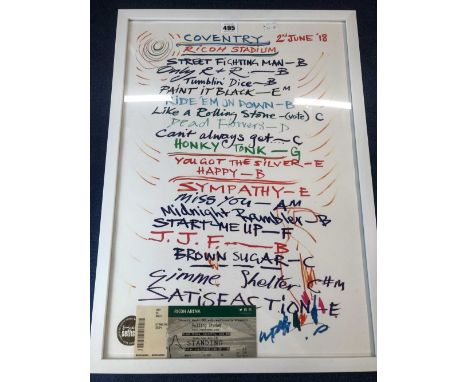 495
COVENTRY 2nd JUNE '18
RICOH STADIUM
STREET FIGHTING MAN - B
Only R + R. - B
Tumblin' Dice - B
PAINT IT BLACK - EM
RIDE 'EM IN DOWN - B
Like a Rolling Stone - (vote) C
Dead Flowers - D
Can't always get - C
HONKY TONK - G
YOU GOT THE SILVER - E
HAPPY - B
SYMPATHY - E
MISS YOU - AM
Midnight Rambler - B
START ME UP - F
J.J.F. - B
BROWN SUGAR - C
Gimme Shelter C#M
SATISFACTION - E
RICOH ARENA
Rolling Stones
STANDING